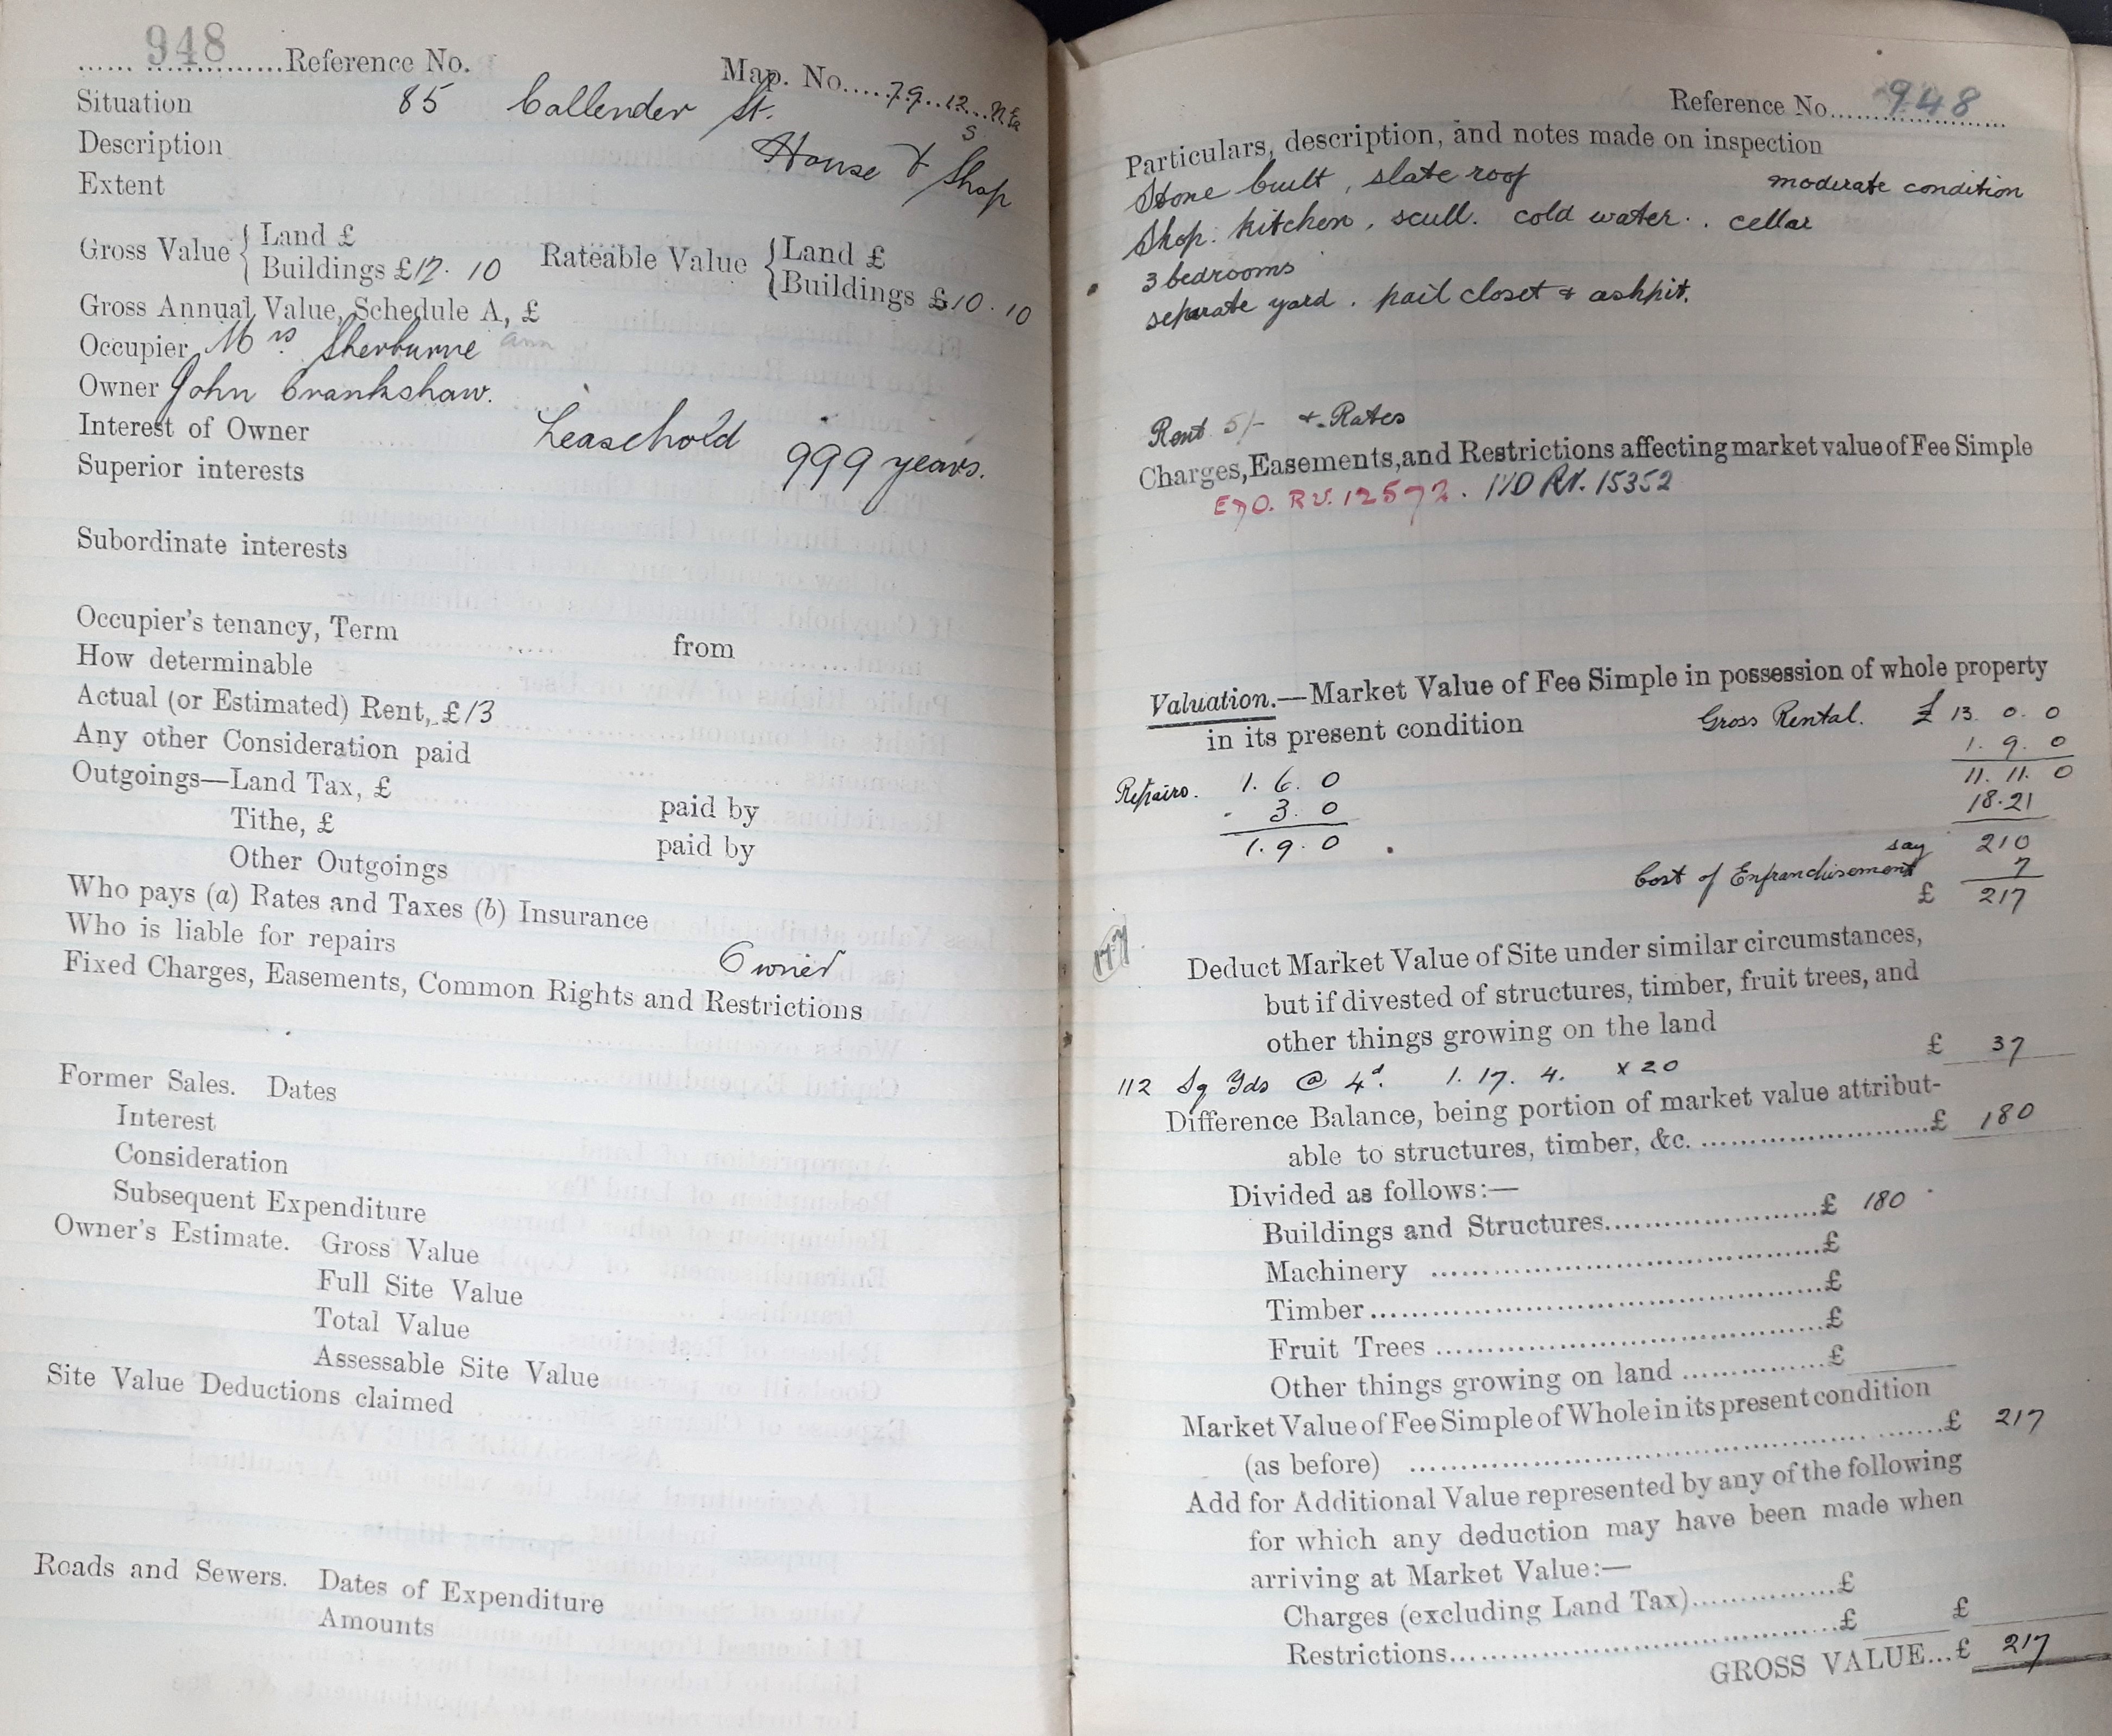 948
Reference No.
Map. No. 79 12
Situation 85 Callender St.
Description House & Shop
Extent
Gross Value { Land £
Buildings £12. 10
Rateable Value { Land £
Buildings £10. 10
Gross Annual Value, Schedule A, £
Occupier Mrs Sherburne ann
Owner John Crankshaw.
Interest of Owner Leasehold 999 years.
Superior interests
Subordinate interests
Occupier's tenancy, Term from
How determinable
Actual (or Estimated) Rent, £13
Any other Consideration paid
Outgoings—Land Tax, £ paid by
Tithe, £ paid by
Other Outgoings
Who pays (a) Rates and Taxes (b) Insurance
Who is liable for repairs Owner
Fixed Charges, Easements, Common Rights and Restrictions
Former Sales. Dates
Interest
Consideration
Subsequent Expenditure
Owner's Estimate. Gross Value
Full Site Value
Total Value
Assessable Site Value
Site Value Deductions claimed
Roads and Sewers. Dates of Expenditure
Amounts
Reference No. 948
Particulars, description, and notes made on inspection
Stone built, slate roof moderate condition
Shop. kitchen, scull. cold water. cellar
3 bedrooms
separate yard. pail closet & ashpit.
Rent 5/- + Rates
Charges, Easements, and Restrictions affecting market value of Fee Simple
RV. 12572. RV. 15352
Valuation.—Market Value of Fee Simple in possession of whole property
in its present condition Gross Rental. £ 13. 0. 0
1. 9. 0
Repairs. 1. 6. 0 11. 11. 0
- 3. 0 18.21
1. 9. 0 say 210
Cost of Enfranchisement 7
£ 217
Deduct Market Value of Site under similar circumstances,
but if divested of structures, timber, fruit trees, and
other things growing on the land £ 37
112 Sq Yds @ 4d. 1. 17. 4. x 20
Difference Balance, being portion of market value attribut-
able to structures, timber, &c. £ 180
Divided as follows:—
Buildings and Structures £ 180
Machinery £
Timber £
Fruit Trees £
Other things growing on land £
Market Value of Fee Simple of Whole in its present condition
(as before) £ 217
Add for Additional Value represented by any of the following
for which any deduction may have been made when
arriving at Market Value:—
Charges (excluding Land Tax) £
Restrictions £ £
GROSS VALUE...£ 217